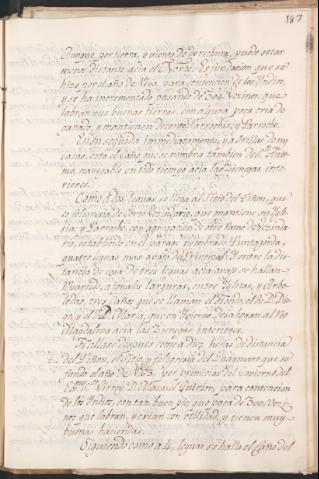 187
Aunque por tierra, y vienes de derechura, puede estar
menos distante acia el Norte. Es fundacion que se
hizo por el año de 1763, para contencion de los Yndios,
y se ha incrementado pasando de 300 Vecinos, que
labran sus buenas tierras, con alguna poca cria de
ganado, y mantienen decente Parroquia, y Parroco.
En seguida immediatamente, y a orillas de sus
casas, está el Caño que se nombra tambien del
navegable en todo tiempo acia las Cienegas inte-
riores.
Como á dos leguas se llega al Sitio del Piñon, que
es feligresia de otro Vecindario, que mantiene su Ygle-
sia, y Parroco, con agregacion de otro tanto Vecinda-
rio, establecido en el parage nombrado Punta gorda,
quatro leguas mas abajo del Principal. Y entre la dis-
tancia de cosa de tres leguas acia abajo se hallan
á iguales larguras, entre Ysletas, y Arbo-
ledas, tres Caños que se llaman el
y el de Maria, que en Ynvierno desaguan al Rio
Magdalena acia las Cienegas interiores.
Hallase despues como a diez horas de distancia
del Piñon, el Sitio, y feligresia del Guaymaro que se
fundó el año de 1763. por primicias del Govierno del
Exmo. Sor. Virrey Dn. Manuel Guirior, para contencion
de los Yndios, con tan buen pie, que pasa de 300 Veci-
nos que labran, y crian con utilidad, y tienen muy
buenas haciendas.
Siguiendo como a 4 leguas se halla el Caño del